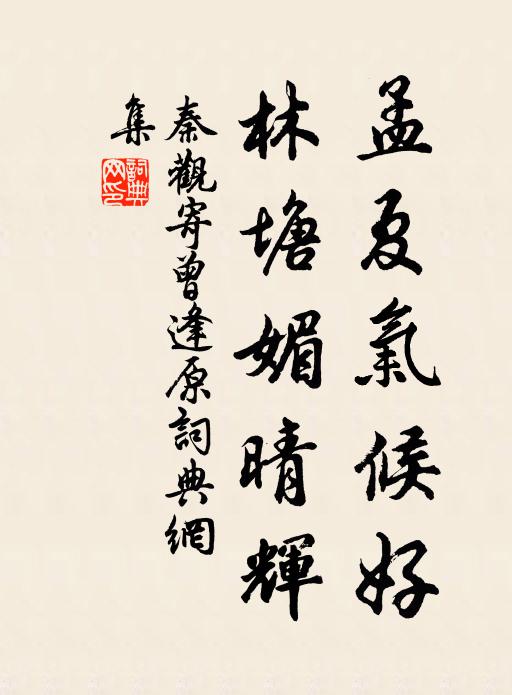 孟夏氣候好
林塘媚晴輝
秦觀寄曾逢原詞典網
集
詞典網印